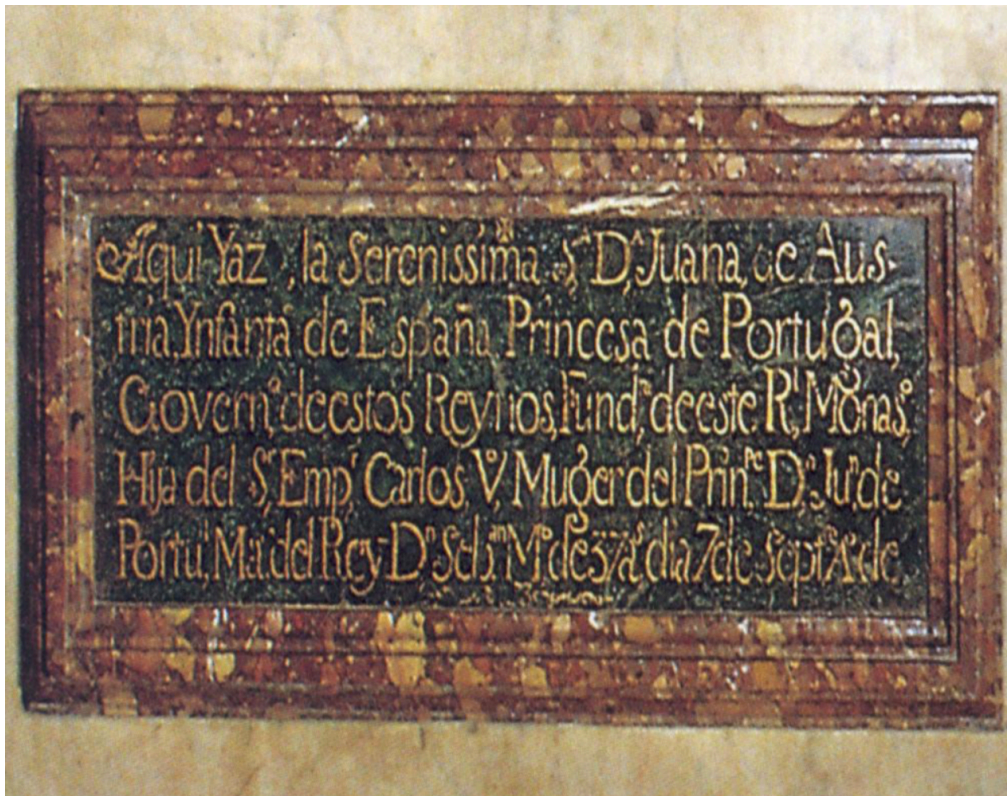 Aqui Yaz, la Serenissima Sra Da, Juana, de Aus-
tria, Ynfanta de España, Princesa de Portugal,
Govern,a de estos Reynos, Fund,ra de este Rl, Monaso,
Hija del Sr, Empr, Carlos, Vo, Muger del Prin,pe Dn, Jun, de
Portul, Ma, del Rey Dn, Seban, Mo de 37 as dia 7 de Sept